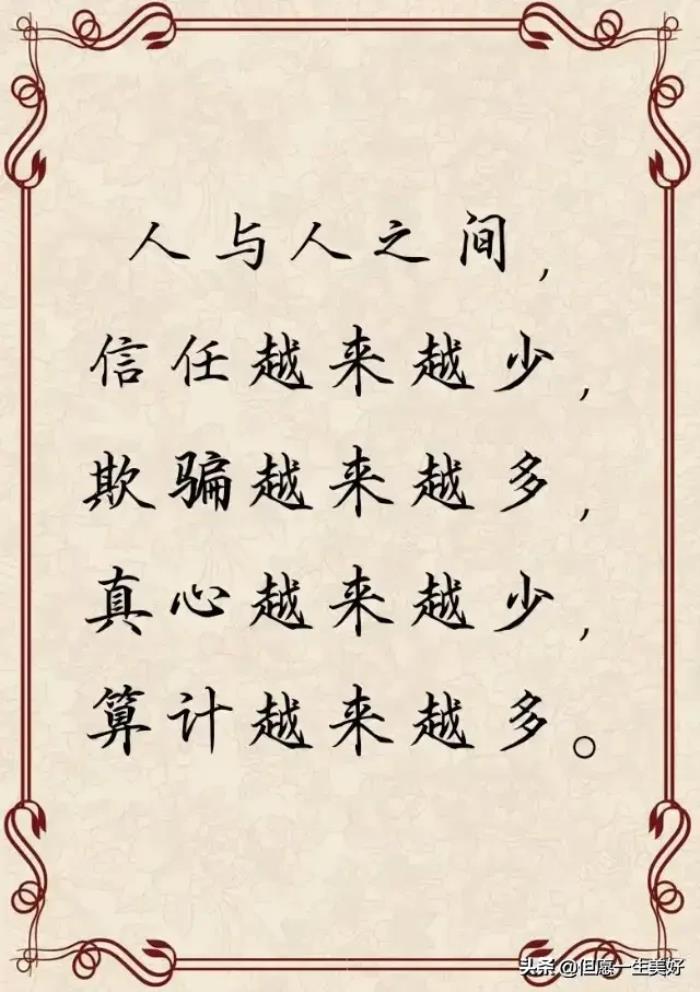 人与人之间，
信任越来越少，
欺骗越来越多，
真心越来越少，
算计越来越多。
头条 @但愿一生美好